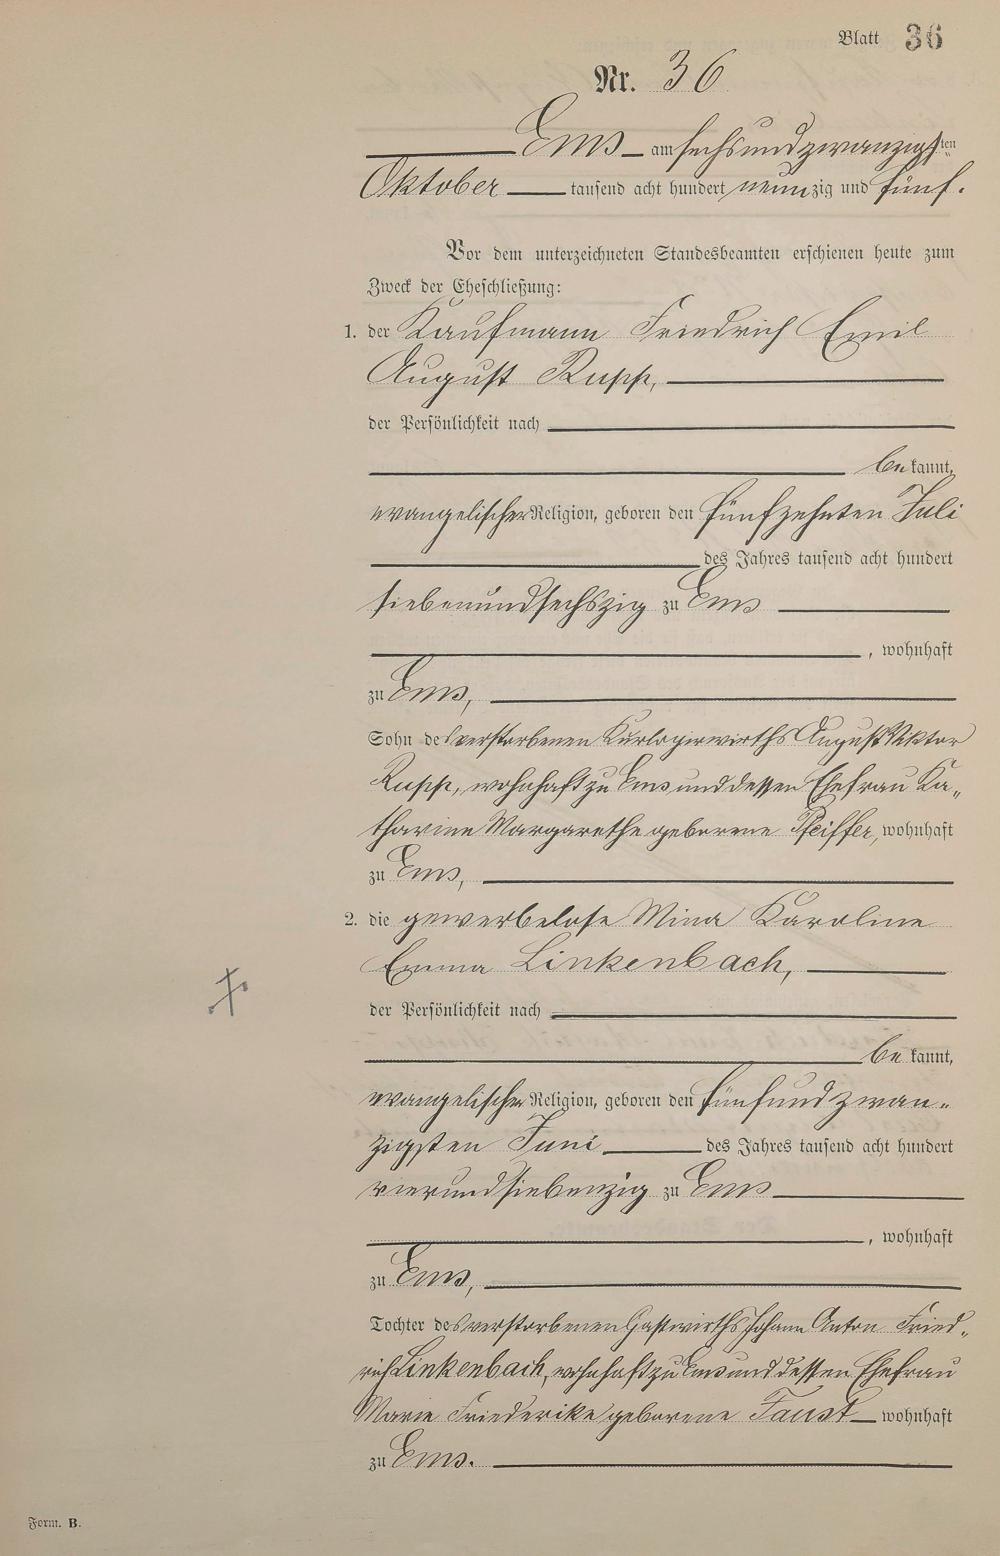 Blatt 36
Nr. 36
Ems am sechsundzwanzigsten
Oktober tausend acht hundert neunzig und fünf.
Vor dem unterzeichneten Standesbeamten erschienen heute zum
Zweck der Eheschließung:
1. der Kaufmann Friedrich Emil
August Rupp,
der Persönlichkeit nach
bekannt,
evangelischer Religion, geboren den fünfzehnten Juli
des Jahres tausend acht hundert
siebenundsechszig zu Ems
, wohnhaft
zu Ems,
Sohn des verstorbenen Kurlogirwirths August Viktor
Rupp, wohnhaft zu Ems und dessen Ehefrau Ka-
tharine Margarethe geborene Pfeiffer, wohnhaft
zu Ems,
2. die gewerbelose Mina Karoline
Emma Linkenbach,
der Persönlichkeit nach
bekannt,
evangelischer Religion, geboren den fünfundzwan-
zigsten Juni des Jahres tausend acht hundert
vierundsiebenzig zu Ems
, wohnhaft
zu Ems,
Tochter des verstorbenen Gastwirths Johann Anton Fried-
rich Linkenbach, wohnhaft zu Ems und dessen Ehefrau
Marie Friederike geborene Faust wohnhaft
zu Ems.
Form. B.